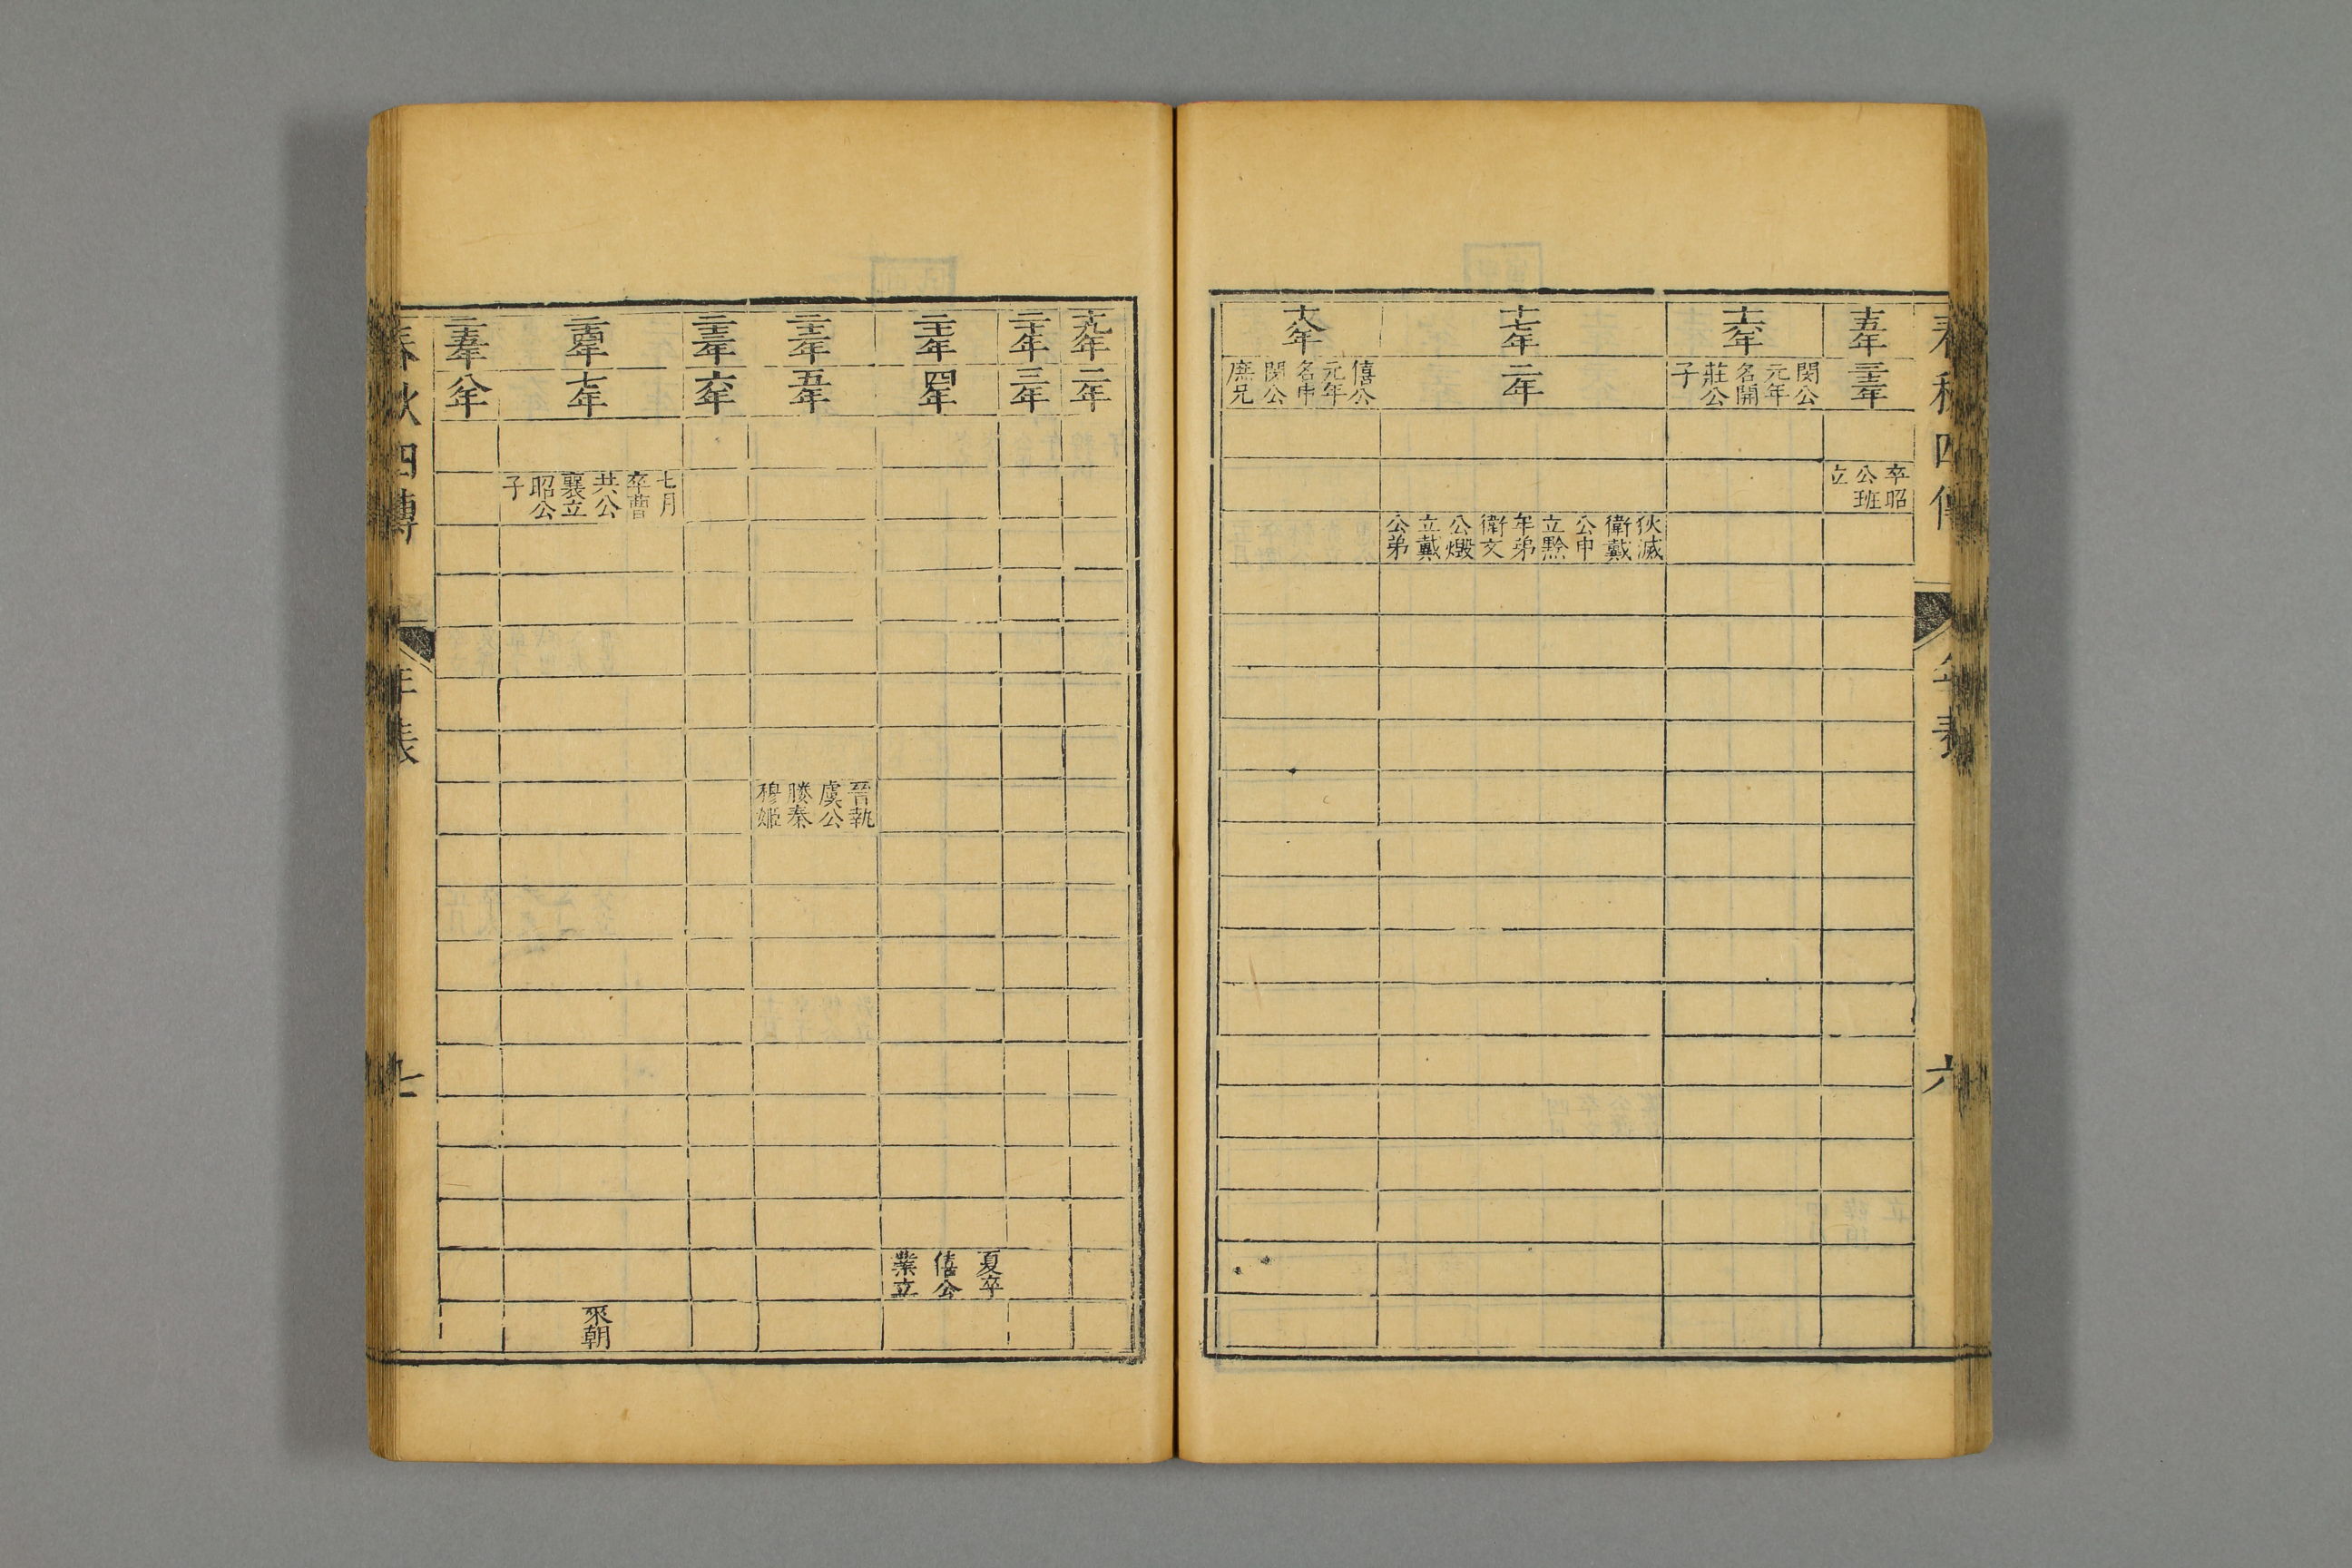 春秋四傳
年表
六
十五年
三十二年
卒昭
公班
立
十六年
閔公
元年
名開
莊公
子
十七年
二年
狄滅
衛戴
公申
立黔
牟弟
衛文
公燬
立戴
公弟
十八年
僖公
元年
名申
閔公
庶兄
十九年
二年
二十年
三年
二十一年
四年
夏卒
僖公
業立
二十二年
五年
晉執
虞公
媵秦
穆姬
二十三年
六年
二十四年
七年
七月
卒曹
共公
襄立
昭公
子
來朝
二十五年
八年
春秋四傳
年表
七